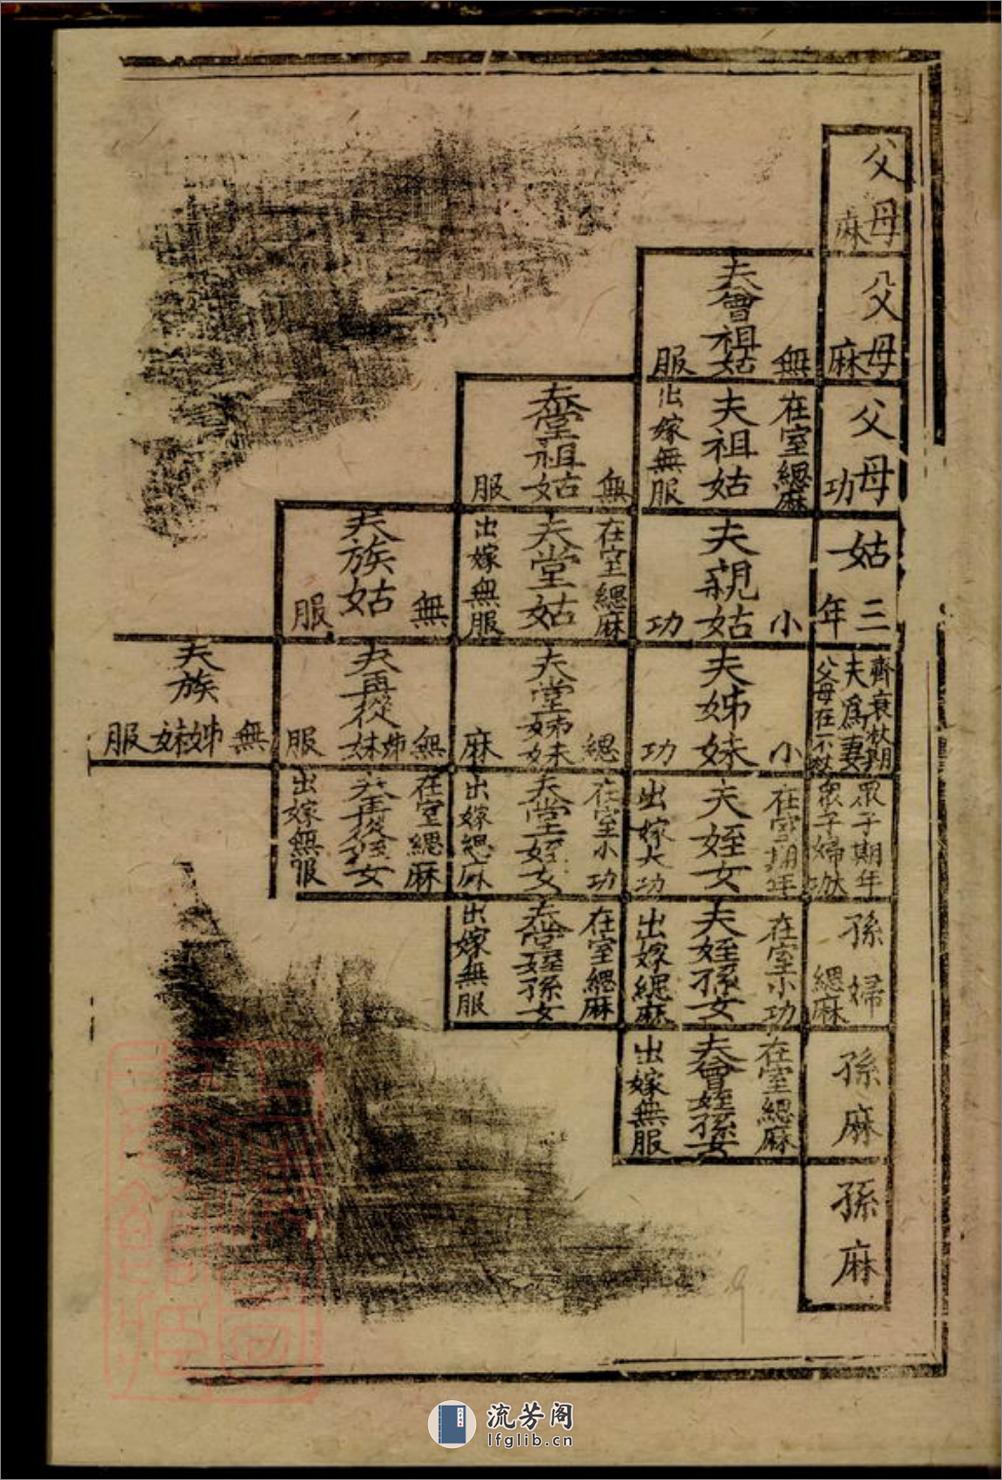 父母麻
父母麻
父母功
姑三年
齊衰杖期
夫為妻
父母在不杖
眾子期年
眾子婦大功
孫婦緦麻
孫麻
孫麻
夫曾祖姑無服
在室緦麻
夫祖姑
出嫁無服
夫親姑小功
夫姊妹小功
在室期年
夫姪女
出嫁大功
在室小功
夫姪孫女
出嫁緦麻
在室緦麻
夫曾姪孫女
出嫁無服
夫堂祖姑無服
在室緦麻
夫堂姑
出嫁無服
夫堂姊妹緦麻
在室小功
夫堂姪女
出嫁緦麻
在室緦麻
夫堂姪孫女
出嫁無服
夫族姑無服
夫再從姊妹無服
在室緦麻
夫再從姪女
出嫁無服
夫族姊妹無服
流芳阁
lfglib.cn